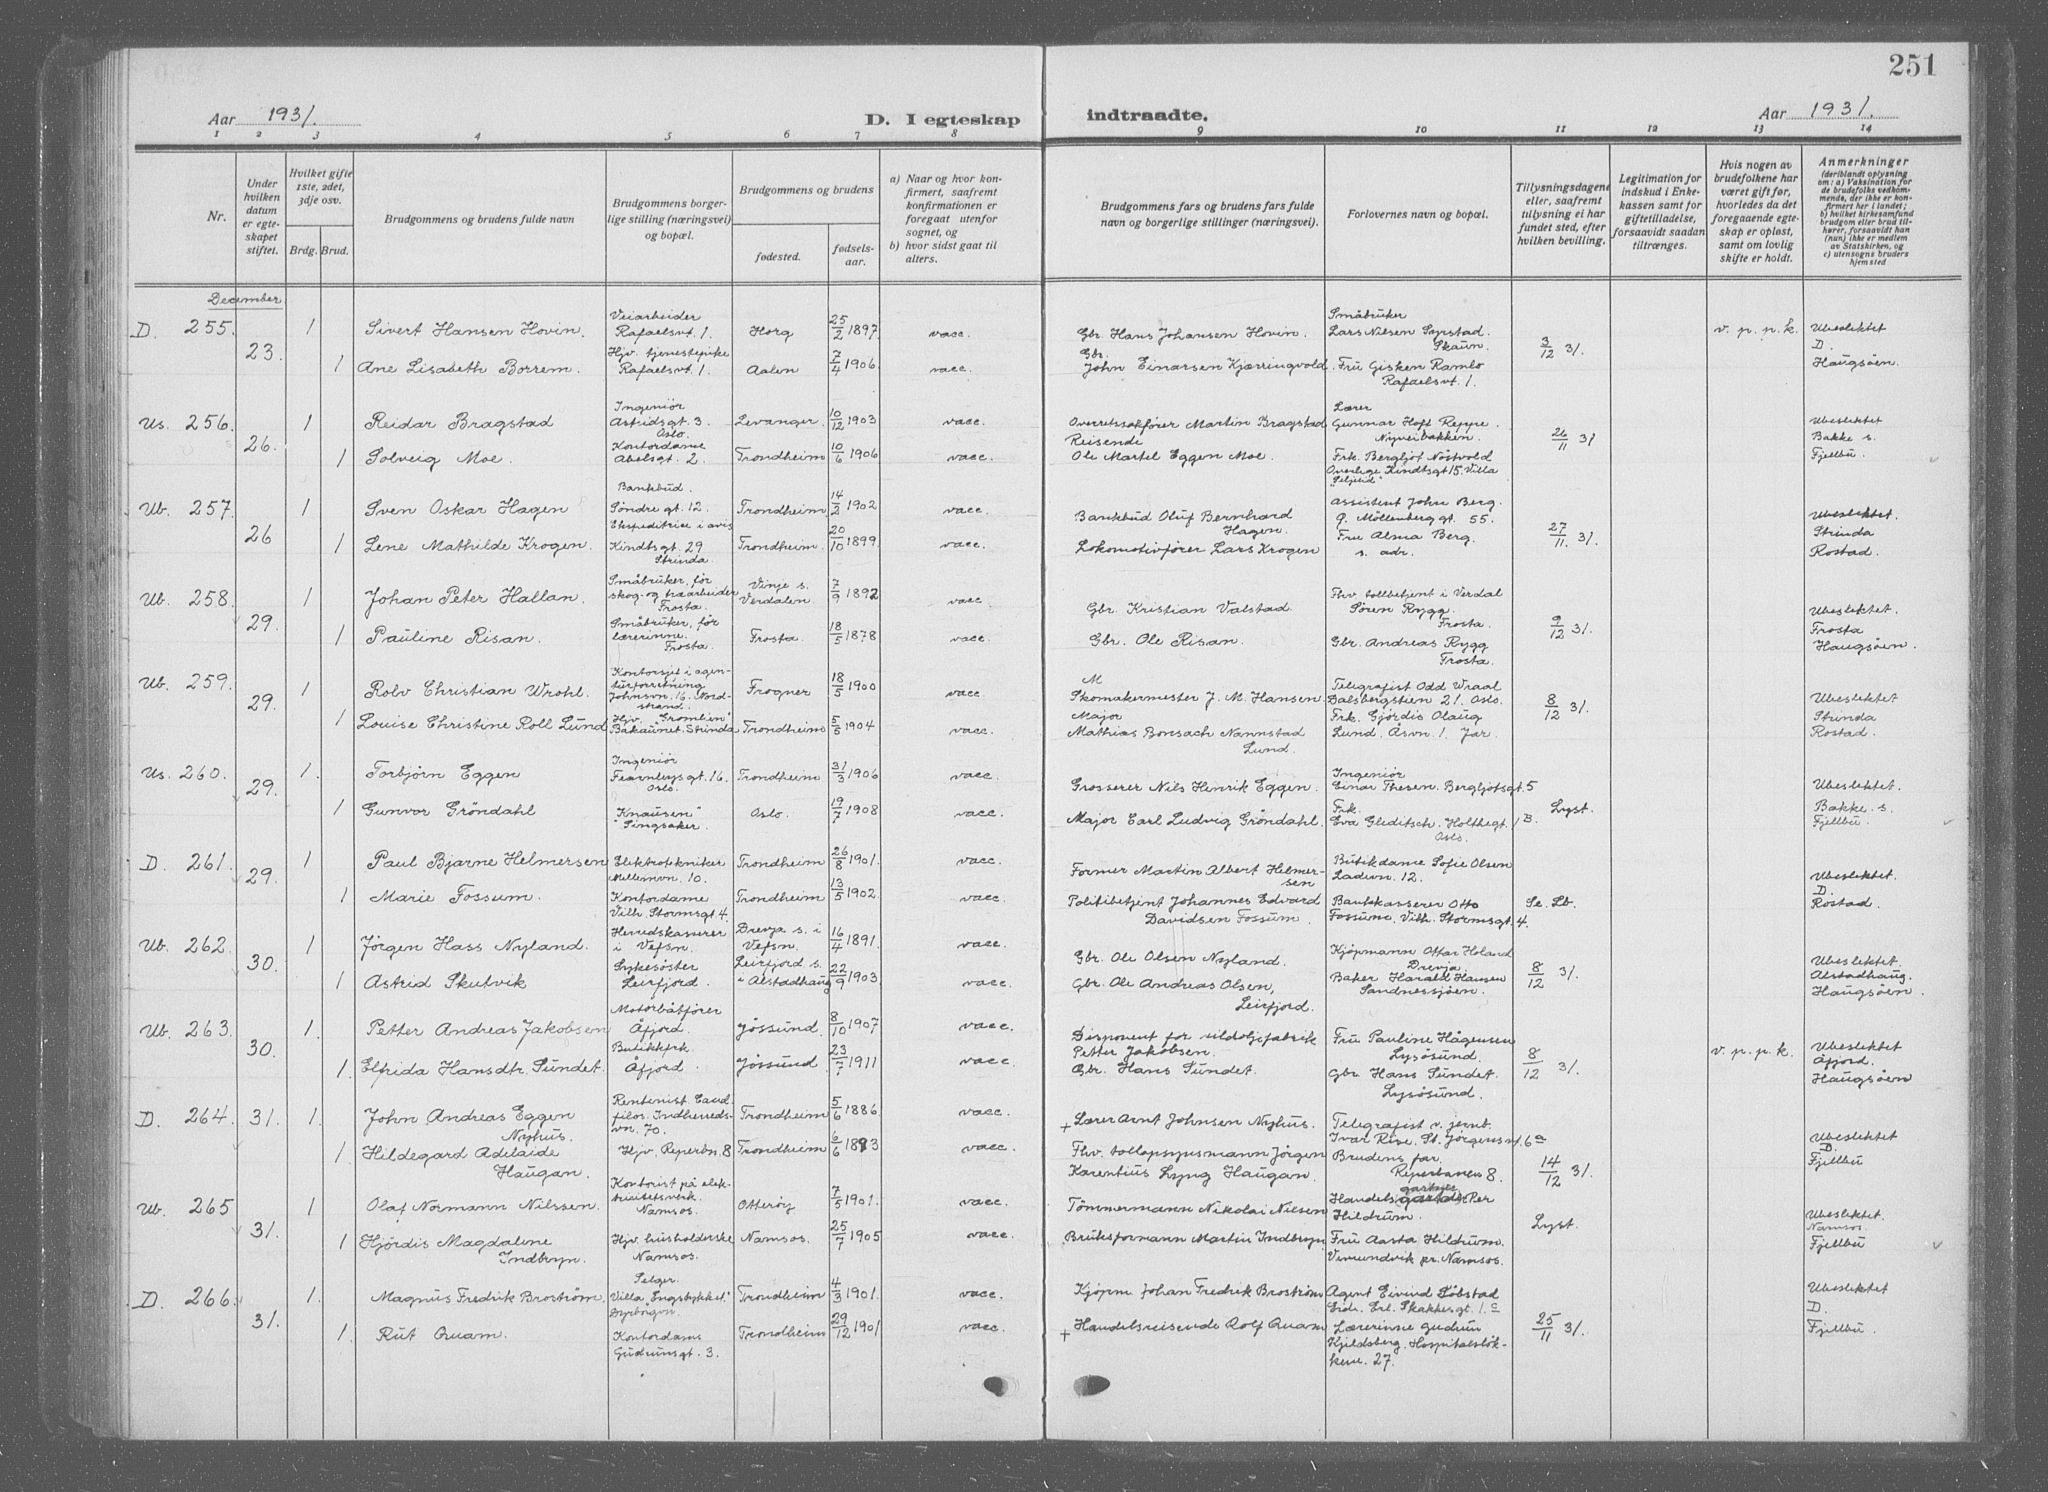 251
Aar 1931.
D. I egteskap indtraadte.
Aar 1931.
1 2 3 4 5 6 7 8 9 10 11 12 13 14
Nr.
Under hvilken datum er egteskapet stiftet.
Hvilket gifte 1ste, 2det, 3dje osv.
Brdg. Brud.
Brudgommens og brudens fulde navn
Brudgommens borgerlige stilling (næringsvei) og bopæl.
Brudgommens og brudens
fødested. fødselsaar.
a) Naar og hvor konfirmert, saafremt konfirmationen er foregaat utenfor sognet, og
b) hvor sidst gaat til alters.
Brudgommens fars og brudens fars fulde navn og borgerlige stillinger (næringsvei).
Forlovernes navn og bopæl.
Tillysningsdagene eller, saafremt tillysning ei har fundet sted, efter hvilken bevilling.
Legitimation for indskud i Enkekassen samt for giftetilladelse, forsaavidt saadan tiltrænges.
Hvis nogen av brudefolkene har været gift før, hvorledes da det foregaaende egteskap er opløst, samt om lovlig skifte er holdt.
Anmerkninger
(deriblandt oplysning om: a) Vaksination for de brudefolks vedkommende, der ikke er konfirmert her i landet; b) hvilket kirkesamfund brudgom eller brud tilhører, forsaavidt han (hun) ikke er medlem av Statskirken, og c) utensogns bruders hjemsted
December
D. 255. 23. 1 Sivert Hansen Hovin. Veiarbeider Rafaelsvt. 1. Horg 25/2 1897 vacc. Gbr. Hans Johansen Hovin. Småbruker Lars Nilsen Syrstad. Skaun. 3/12 31. v. p. p. k. Ubeslektet D. Haugsøen.
1 Ane Lisabeth Borrem. Hjv. tjenestepike Rafaelsvt. 1. Aalen 7/4 1906. vacc. Gbr. John Einarsen Kjærringvold. Fru Gisken Ramlo Rafaelsvt. 1.
Us. 256. 26. 1 Reidar Bragstad Ingeniør Astridsgt. 3. Oslo. Levanger 10/12 1903 vacc. Overretssakfører Martin Bragstad Lærer Gunnar Hoft Reppe. Nyveibakken. 26/11 31 Ubeslektet Bakke s. Fjellbu.
1 Solveig Moe. Kontordame Abelsgt. 2. Trondheim 10/6 1906 vacc. Reisende Ole Martel Eggen Moe. Frk. Bergljot Nöstvold Overlege Kindtsgt 15. Villa
Ub. 257. 26 1 Sven Oskar Hagen Bankbud. Söndre gt. 12. Trondheim 14/2 1902 vacc. Bankbud Oluf Bernhard Hagen. Assistent John Berg. Ø. Möllenberg gt. 55. 27/11. 31. Ubeslektet. Strinda Rostad.
1 Lene Mathilde Krogen. Ekspeditrise i avis Kindtsgt. 29 Strinda. Trondheim. 20/10 1899. vacc. Lokomotivfører Lars Krogen Fru Alma Berg. s. adr.
Ub. 258. 29. 1 Johan Peter Hallan. Småbruker, før skog- og fraarbeider Frosta. Vinje s. Verdalen. 7/9 1892 vacc. Gbr. Kristian Valstad. Fhv. tollbetjent i Verdal Søren Rygg. Frosta. 9/12 31. Ubeslektet. Frosta Haugsøen.
1 Pauline Risan. Småbruker, før lærerinne. Frosta. Frosta. 18/5 1878 vacc. Gbr. Ole Risan. Gbr. Andreas Rygg Frosta.
Ub. 259. 29. 1 Rolv Christian Wrohl. Kontorsjef i agenturforretning Johnsvn. 16. Nordstrand. Frogner 18/5 1900 vacc. Skomakermester J. M. Hansen. Telegrafist Odd Wraal Dalsbergstien 21. Oslo. 8/12 31. Ubeslektet Strinda Rostad.
1 Louise Christine Roll Lund Hjv. "Gromlien" Bakaunet. Strinda Trondheim 5/5 1904 vacc. Major Mathias Bonsach Nannstad Lund. Frk. Gjördis Olaug Lund. Åsvn. 1. Jar.
Us. 260. 29. 1. Torbjørn Eggen Ingeniør Fearnleysgt. 16. Oslo. Trondheim 31/3 1906 vacc. Grosserer Nils Henrik Eggen. Ingeniør Einar Thesen. Bergljotsgt. 5 Lyst. Ubeslektet. Bakke s. Fjellbu.
1 Gunvor Gröndahl "Knausen" Singsaker. Oslo. 19/7 1908 vacc. Major Carl Ludvig Gröndahl. Frk. Eva Gleditsch. Holtbegt. 1 B. Oslo.
D. 261. 29. 1 Paul Bjarne Helmersen Elektrotekniker Mellemvn. 10. Trondheim 26/8 1901. vacc. Former Martin Albert Helmersen Butikdame Sofie Olsen Ladevn. 12. Se. Lb. Ubeslektet. D. Rostad.
1 Marie Fossum. Kontordame Vilh. Stormsgt. 4. Trondheim 13/5 1902. vacc. Politibetjent Johannes Edvard Davidsen Fossum. Bankkasserer Otto Fossum. Vilh. Stormsgt. 4.
Ub. 262 30. 1 Jørgen Hass Nyland. Herredskasserer i Vefsn. Drevja s. i Vefsn. 16/4 1891. vacc. Gbr. Ole Olsen Nyland. Kjøpmann Ottar Holand Drevja. 8/12 31. Ubeslektet. Alstadhaug. Haugsøen.
1 Astrid Skutvik Sykesøster Leirfjord. Leirfjord s. i Alstadhaug 22/9 1903. vacc. Gbr. Ole Andreas Olsen, Leirfjord. Baker Harald Hansen Sandnessjøen.
Ub. 263. 30. 1. Petter Andreas Jakobsen Motorbåtfører Åfjord. Jøssund. 8/10 1907 vacc. Disponent for sildoljefabrik Petter Jakobsen. Fru Pauline Hågensen Lysøsund. 8/12 31. v. p. p. k. Ubeslektet Åfjord. Haugsøen
1. Elfrida Hansdtr. Sundet. Butikkfrk. Åfjord. Jøssund 23/7 1911 vacc. Gbr. Hans Sundet. Gbr. Hans Sundet. Lysøsund.
D. 264. 31. 1. John Andreas Eggen Nyhus. Rentenist. Cand. filos. Indherredsvn. 70. Trondheim 5/6 1886. vacc. + Lærer Arnt Johnsen Nyhus. Telegrafist v. jernb. Ivar Rise. St. Jørgensvt. 6a 14/12 31. Ubeslektet D. Fjellbu
1. Hildegard Adelaide Haugan. Hjv. Reperbn. 8 Trondheim 6/6 1893 vacc. Fhv. tollopsynsmann Jörgen Karentius Lyng Haugan. Brudens far. Reperbanen 8.
Ub. 265 31. 1 Olaf Normann Nilssen. Kontorist på elektricitetsverk. Namsos. Otterøy 7/5 1901. vacc. Tömmermann Nikolai Nilsen Handelsgartner Per Hildrum. Lyst. Ubeslektet. Namsos. Fjellbu
1 Hjördis Magdalene Indbryn. Hjv. husholderske Namsos. Namsos. 25/7 1905 vacc. Bruksformann Martin Indbryn Fru Aasta Hildrum. Vemundvik pr. Namsos.
D. 266. 31. 1. Magnus Fredrik Broström. Selger. Villa "Engslykket." Trondheim 4/3 1901. vacc. Kjöpm. Johan Fredrik Broström Agent Eivind Löbstad Eidr. Erl. Skakkesgt. 1.c 25/11 31. Ubeslektet D. Fjellbu.
1. Rut Quam. Kontordame Gudrunsgt. 3. Trondheim 29/12 1901 vacc. + Handelsreisende Rolf Quam Lærerinne Gudrun Kjeldsberg. Hospitalsløkken. 27.